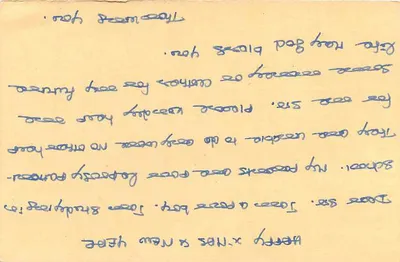 HAPPY X-MAS & NEW YEAR
Dear Sir. I am a poor boy. I am studying in
School. My parents are poor Leprosy patient.
They are unable to do any work no other hope
for me Sir. Please kindly help me
some money or clothes for my future
Life. May God bless you.
you.